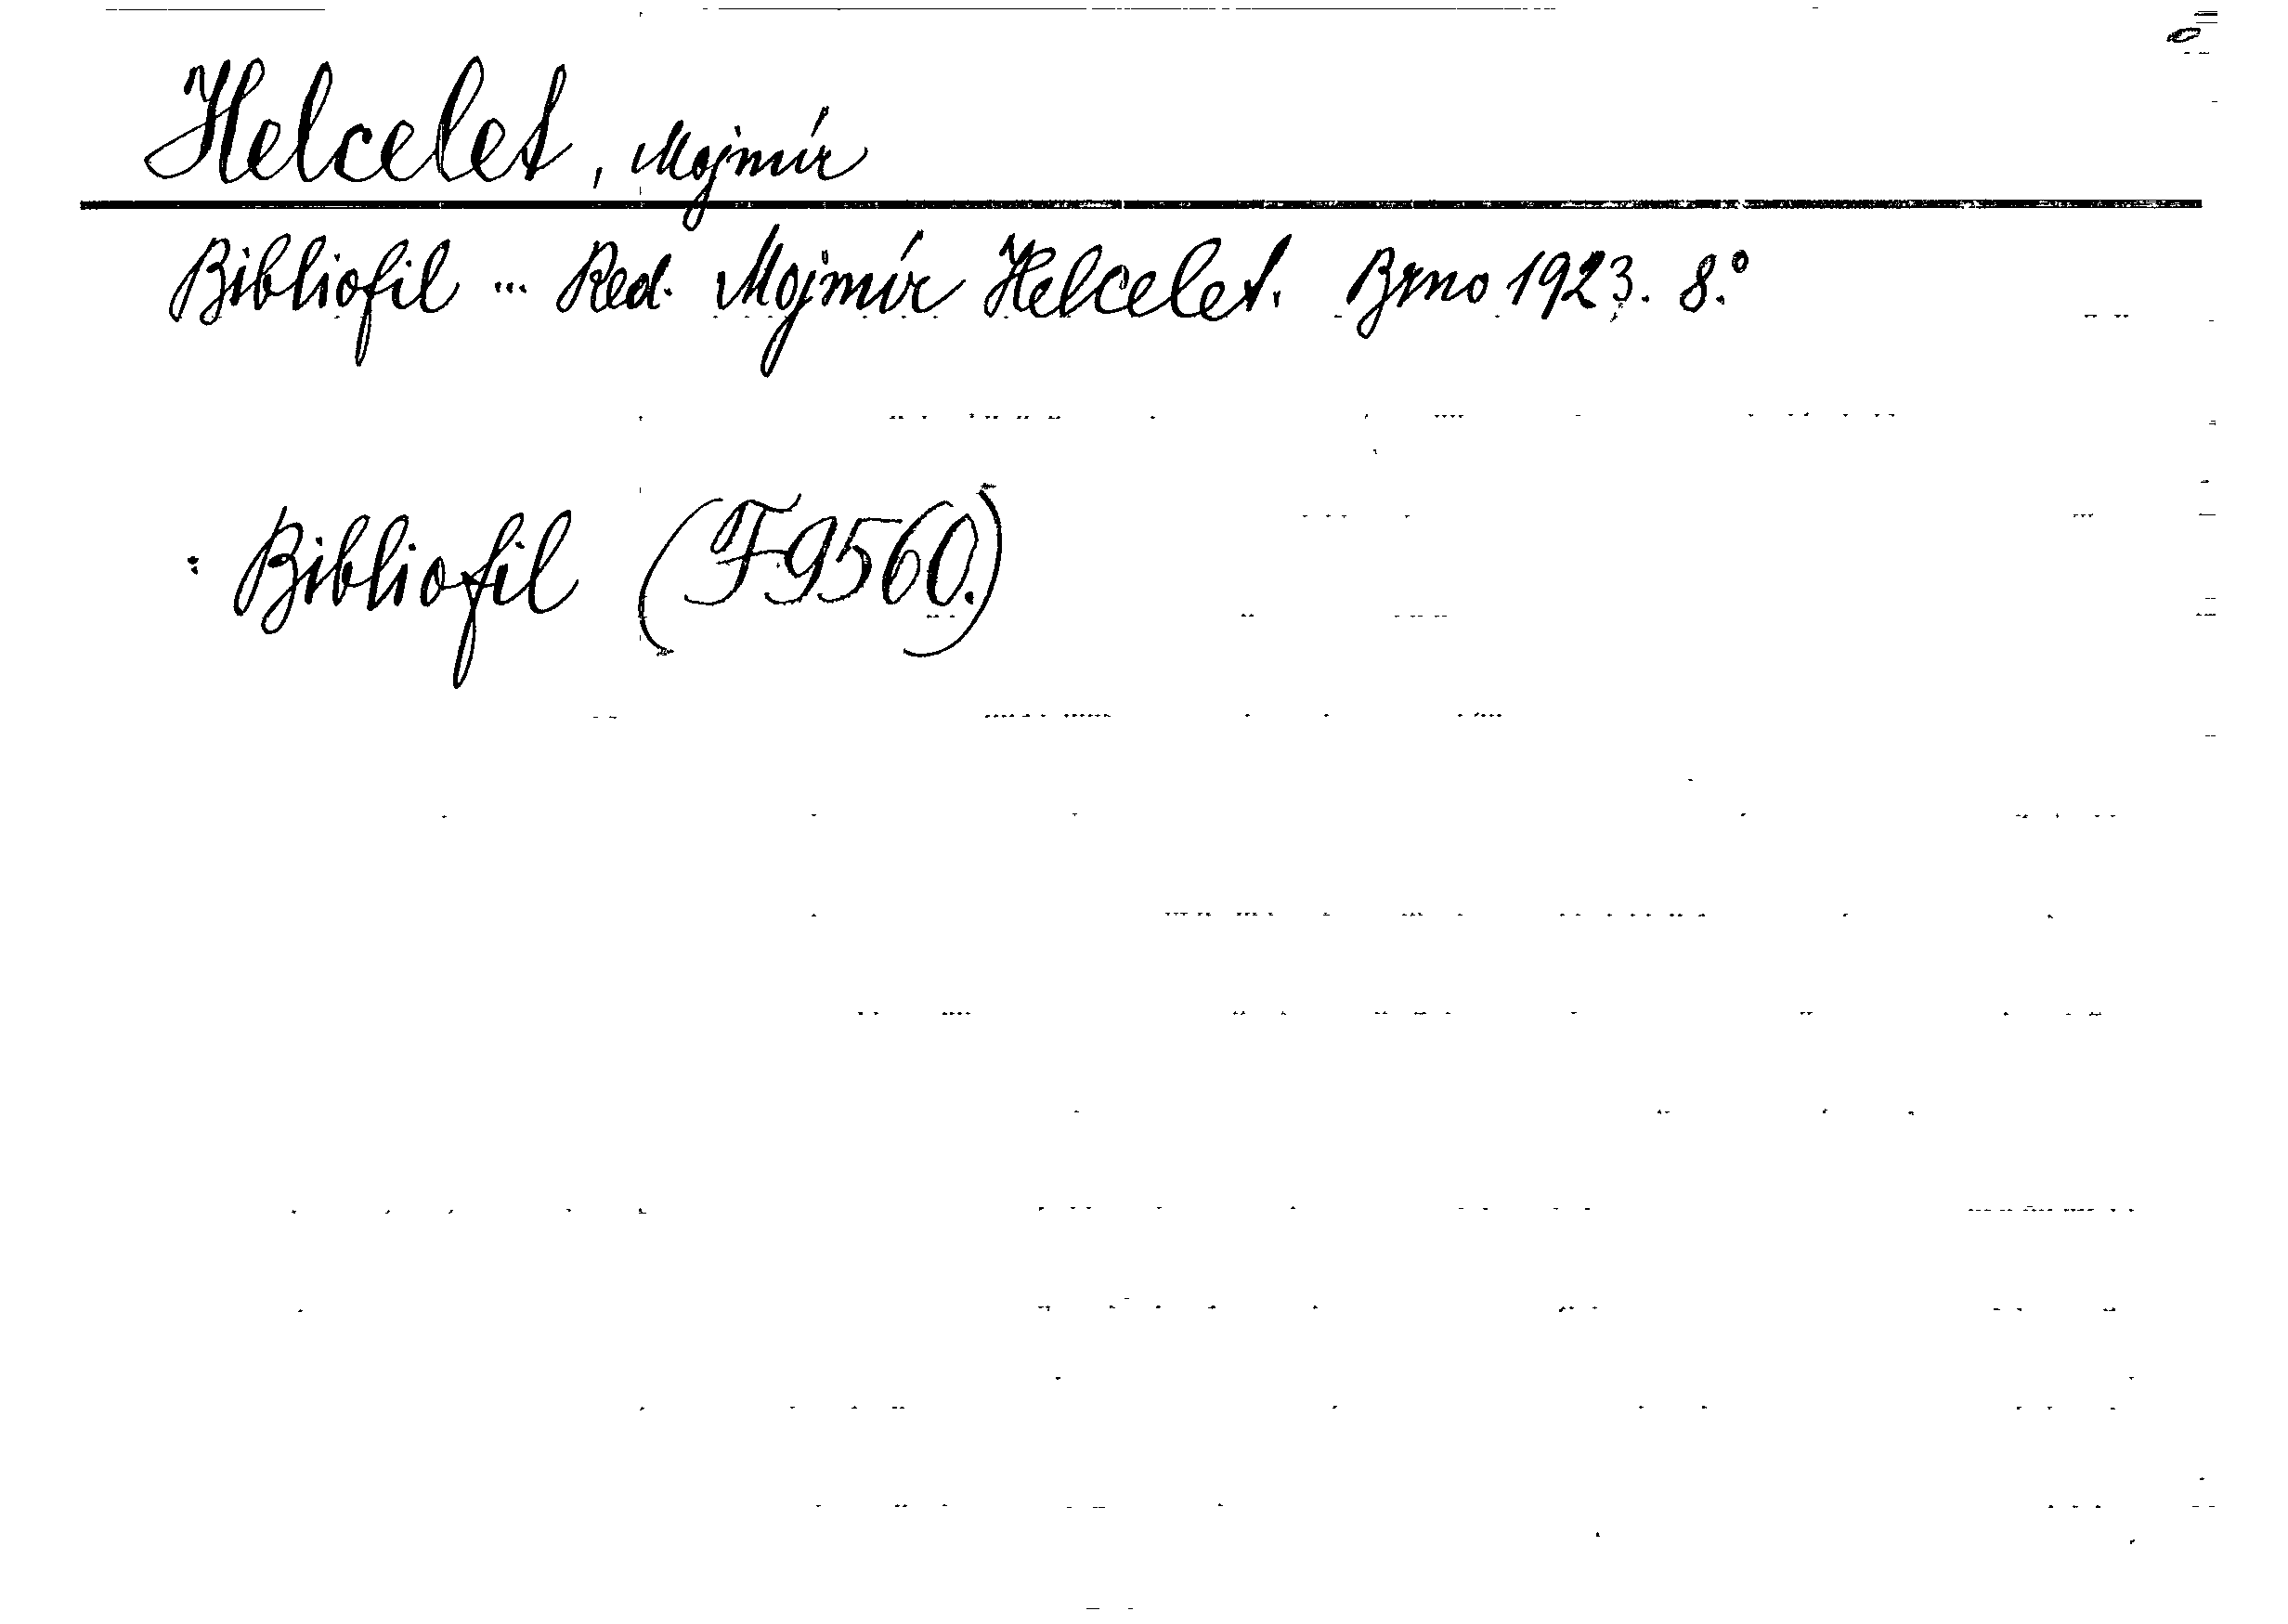 Helcelet, Mojmír
Bibliofil ... Red. Mojmír Helcelet. Brno 1923. 8.°
: Bibliofil (F9560.)